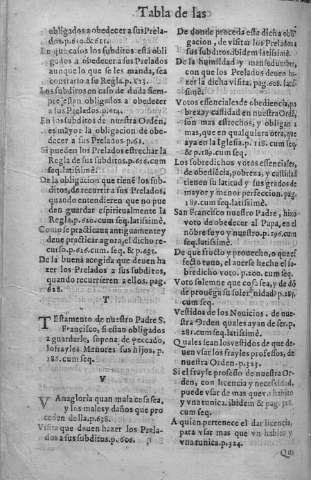 Tabla de las
obligados a obedecer a sus Prela-
dos.p.610.& 611.
En que casos los subditos está obli
gados a obedecer a sus Prelados
aunque lo que se les manda, sea
contrario a su Regla.p.613.
Los subditos en caso de duda siem-
pre estan obligados a obedecer
a sus Prelados.p.614.
En los subditos de nuestra Orden,
es mayor la obligacion de obe-
decer a sus Prelados p.61.
Si pueden los Prelados estrechar la
Regla de sus subditos.p.616.cum
seq.latissimè.
De la obligacion que tienē los sub-
ditos, de recurrir a sus Prelados,
quando entendieren que no pue
den guardar espiritualmente la
Regla.p.620.cum seq.latissimè.
Como se practicaua antiguamente y
deue practicar agora, el dicho re-
curso.p.626.cum seq.& p.631.
De la buena acogida que deuen ha
zer los Prelados a sus subditos,
quando recurrieren a ellos. pag.
628.
T
TEstamento de nuestro Padre S.
Francisco, si estan obligados
a guardarle, sopena de peccado,
los frayles Menores sus hijos. p.
185.cum seq.
V
VAnagloria quan mala cosa sea,
y los males y daños que pro
ceden della.p.638.
Visita que deuen hazer los Prela-
dos a sus subditos.p.606.
De donde proceda esta dicha obli-
gacion, de visitar los Prelados a
sus subditos.ibidem latissimè.
De la humildad y mansedumbre,
con que los Prelados deuen ha-
zer la dicha visita.pag.608.latis-
simè.
Votos essenciales de obediencia, po
breza y castidad en nuestra Ordē,
son mas estrechos, y obligan a
mas, que en qualquiera otra, que
aya en la Iglesia.p.118. cum seq.
& p.189.cum seq.
Los sobredichos votos essenciales,
de obediēcia, pobreza, y castidad
tienen su latitud y sus grados de
mayor y menor perfeccion. pag.
189.cum seq.latissimè.
San Francisco nuestro Padre, hizo
voto de obedecer al Papa, en el
nōbre suyo y nuestro.p.196.cum
seq.latissimè.
De que fructo y prouecho, o que ef
fecto tuuo, el auerse hecho el so-
bredicho voto.p.200. cum seq.
Voto solemne que cosa sea, y de dō
de prouiga su solemnidad p.285.
cum seq.
Vestidos de los Nouicios, de nue-
stra Orden quales ayan de ser.p.
281.cum seq.latissimè.
Quales sean los vestidos de que de-
uen vsar los frayles professos, de
nuestra Orden.p.323.
Si el frayle professo de nuestra Or-
den, con licencia y necessidad,
puede vsar de mas que vn habito
y vna tunica. ibidem & pag. 328.
cum seq.
A quien pertenece el dar licencia,
para vsar mas que vn habito y
vna tunica.p.324.
Qua